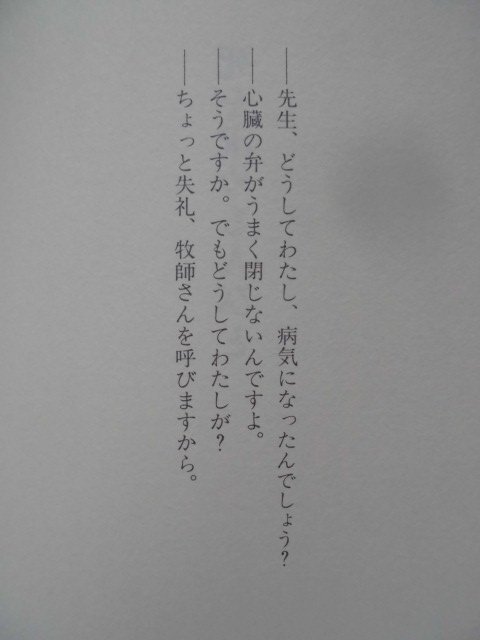 ──先生、どうしてわたし、病気になったんでしょう？
──心臓の弁がうまく閉じないんですよ。
──そうですか。でもどうしてわたしが？
──ちょっと失礼、牧師さんを呼びますから。